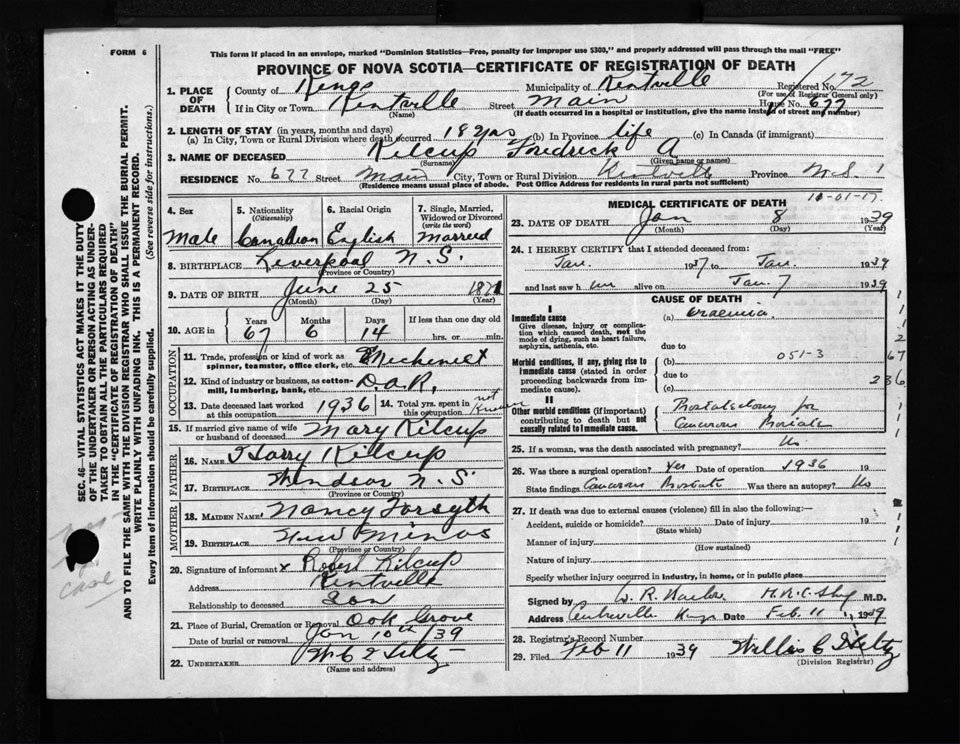 FORM 6
This form if placed in an envelope, marked "Dominion Statistics—Free, penalty for improper use $300," and properly addressed will pass through the mail "FREE"
PROVINCE OF NOVA SCOTIA—CERTIFICATE OF REGISTRATION OF DEATH
1. PLACE OF DEATH County of Kings Municipality of Kentville Registered No. 672
(For use of Registrar General only)
If in City or Town Kentville Street Main House No. 677
(Name) (If death occurred in a hospital or institution, give the name instead of street and number)
2. LENGTH OF STAY (in years, months and days)
(a) In City, Town or Rural Division where death occurred 18 yrs (b) In Province life (c) In Canada (if immigrant)
3. NAME OF DECEASED Kilcup Fredrick A
(Surname) (Given name or names)
RESIDENCE No. 677 Street Main City, Town or Rural Division Kentville Province N.S. 1
(Residence means usual place of abode. Post Office Address for residents in rural parts not sufficient)
4. Sex Male
5. Nationality (Citizenship) Canadian
6. Racial Origin English
7. Single, Married, Widowed or Divorced (write the word) Married
8. BIRTHPLACE Liverpool N.S.
(Province or Country)
9. DATE OF BIRTH June 25 1871
(Month) (Day) (Year)
10. AGE in Years Months Days If less than one day old
67 6 14 hrs. or min.
OCCUPATION
11. Trade, profession or kind of work as spinner, teamster, office clerk, etc.
12. Kind of industry or business, as cotton-mill, lumbering, bank, etc. D.A.R.
13. Date deceased last worked at this occupation 1936
14. Total yrs. spent in this occupation not known
15. If married give name of wife or husband of deceased Mary Kilcup
FATHER
16. NAME Harry Kilcup
17. BIRTHPLACE Windsor N.S.
(Province or Country)
MOTHER
18. MAIDEN NAME Nancy Forsyth
19. BIRTHPLACE New Minas
(Province or Country)
20. Signature of informant x Robert Kilcup
Address Kentville
Relationship to deceased Son
21. Place of Burial, Cremation or Removal Oak Grove
Date of burial or removal Jan 10th /39
22. UNDERTAKER
(Name and address)
MEDICAL CERTIFICATE OF DEATH
23. DATE OF DEATH Jan 8 1939
(Month) (Day) (Year)
24. I HEREBY CERTIFY that I attended deceased from:
Jan. 1937 to Jan. 1939
and last saw h im alive on Jan. 7 1939
CAUSE OF DEATH
I
Immediate cause (a) Uraemia
Give disease, injury or complication which caused death, not the mode of dying, such as heart failure, asphyxia, asthenia, etc.
due to
Morbid conditions, if any, giving rise to immediate cause (stated in order proceeding backwards from immediate cause). (b) 051-3
due to
(c)
II
Other morbid conditions (if important) contributing to death but not causally related to immediate cause.
Prostatectomy for
Cancerous Prostate
25. If a woman, was the death associated with pregnancy? No
26. Was there a surgical operation? Yes Date of operation 1936 19
State findings Cancerous Prostate Was there an autopsy? No
27. If death was due to external causes (violence) fill in also the following:—
Accident, suicide or homicide? Date of injury 19
(State which)
Manner of injury
(How sustained)
Nature of injury
Specify whether injury occurred in industry, in home, or in public place
Signed by M.D.
Address Centreville Kings Date Feb 11 1939
28. Registrar's Record Number
29. Filed Feb 11 1939
(Division Registrar)
SEC. 46—VITAL STATISTICS ACT MAKES IT THE DUTY
OF THE UNDERTAKER OR PERSON ACTING AS UNDER-
TAKER TO OBTAIN ALL THE PARTICULARS REQUIRED
IN THE "CERTIFICATE OF REGISTRATION OF DEATH"
AND TO FILE THE SAME WITH THE DIVISION REGISTRAR WHO SHALL ISSUE THE BURIAL PERMIT.
WRITE PLAINLY WITH UNFADING INK. THIS IS A PERMANENT RECORD.
Every item of information should be carefully supplied. (See reverse side for instructions.)
case